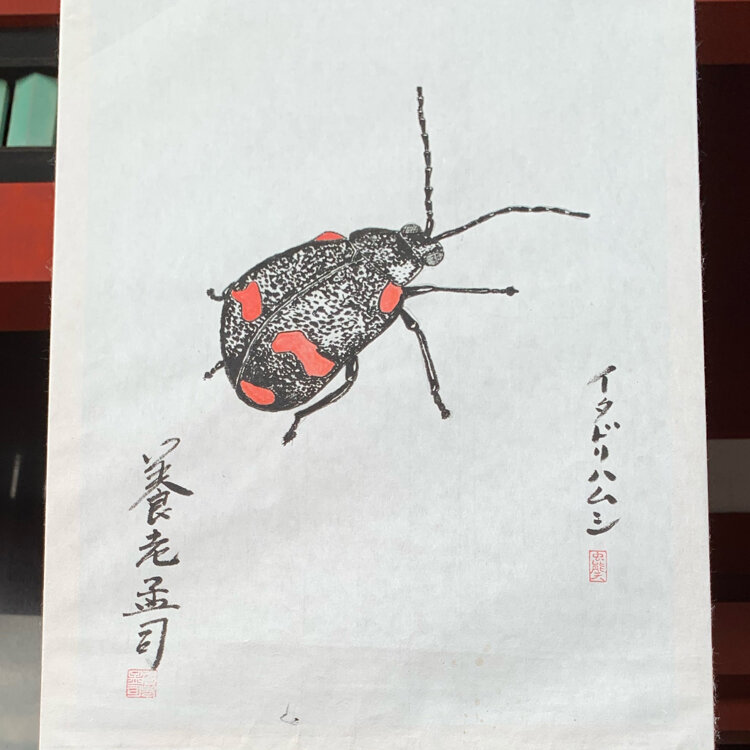 イタドリハムシ
養老孟司